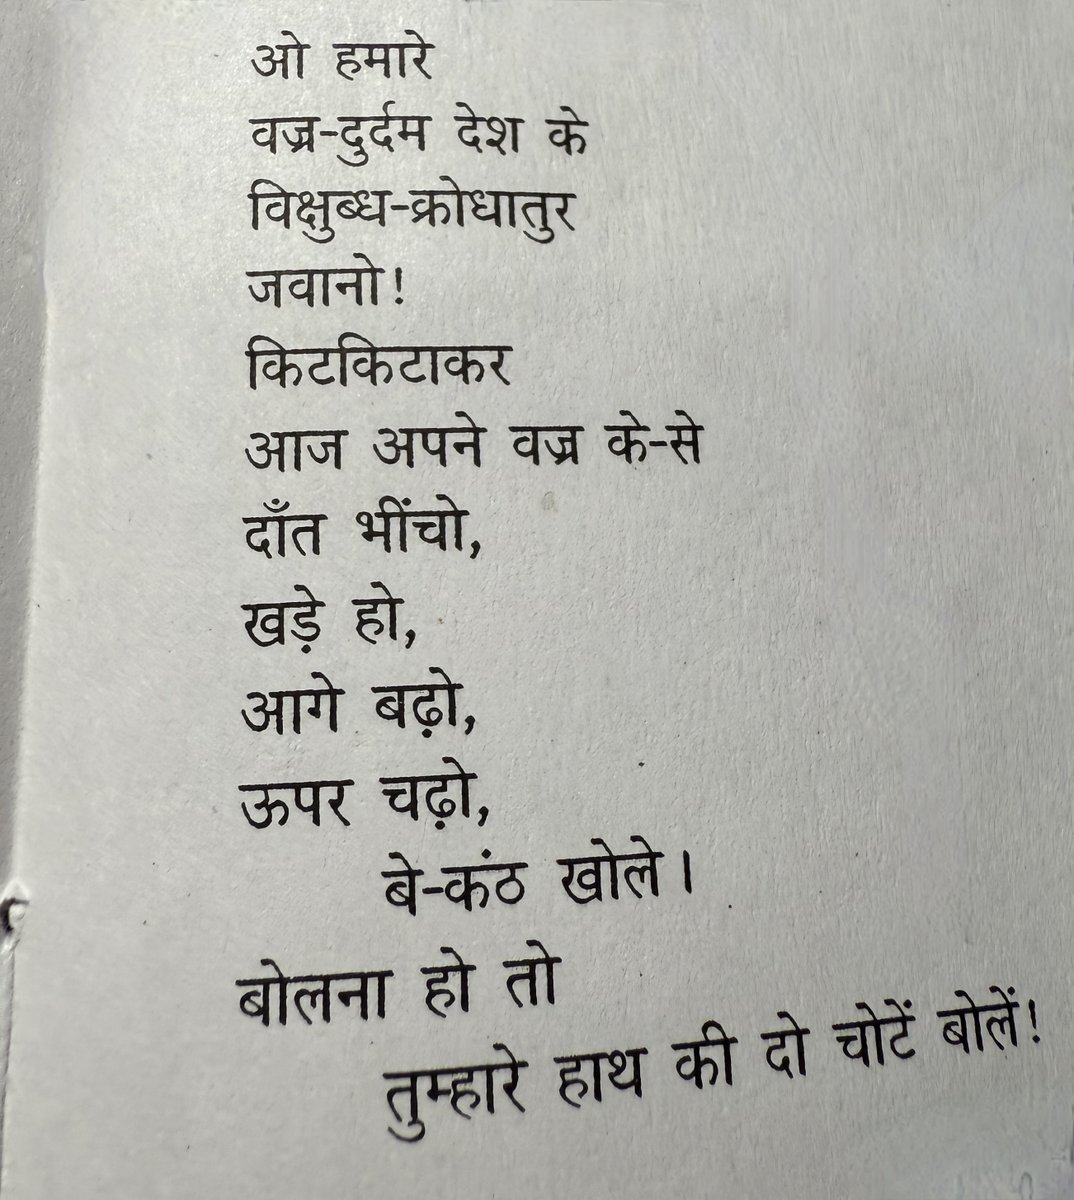 ओ हमारे
वज्र-दुर्दम देश के
विक्षुब्ध-क्रोधातुर
जवानो!
किटकिटाकर
आज अपने वज्र के-से
दाँत भींचो,
खड़े हो,
आगे बढ़ो,
ऊपर चढ़ो,
बे-कंठ खोले।
बोलना हो तो
तुम्हारे हाथ की दो चोटें बोलें!